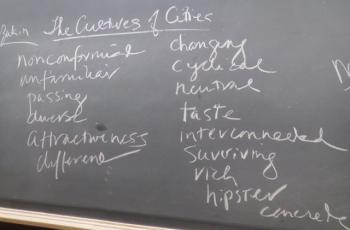 Zukin The Cultures of Cities
nonconformist
unfamiliar
passing
diverse
attractiveness
difference
changing
cyclical
neutral
taste
interconnected
surviving
rich
hipster
concrete